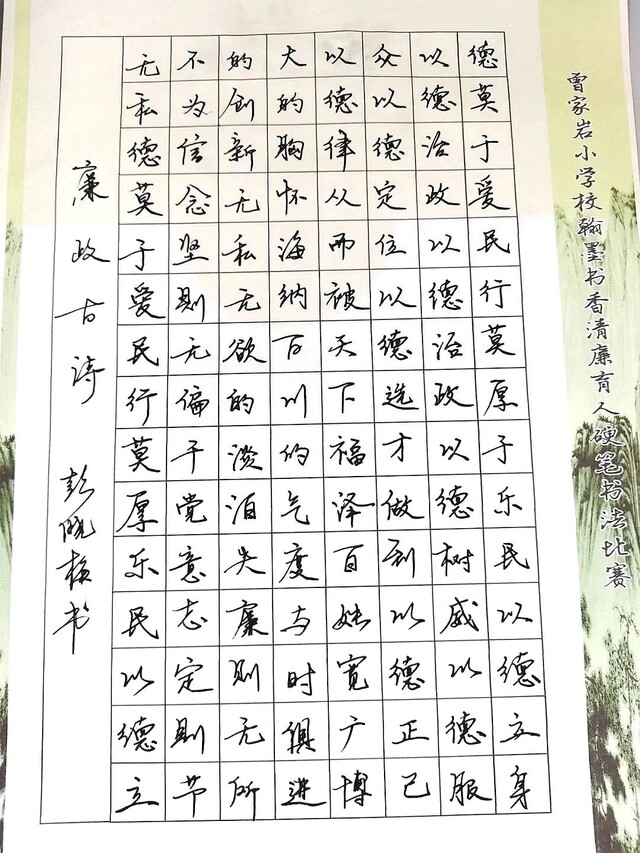 曾家岩小学校翰墨书香清廉育人硬笔书法比赛
德莫于爱民行莫厚于乐民以德立身
以德治政以德治政以德树威以德服
众以德定位以德选才做到以德正己
以德律从而被天下福泽百姓宽广博
大的胸怀海纳百川的气度与时俱进
的创新无私无欲的淡泊失廉则无所
不为信念坚则无偏干党意志定则节
无私德莫于爱民行莫厚乐民以德立
廉政古诗 彭晓梅书